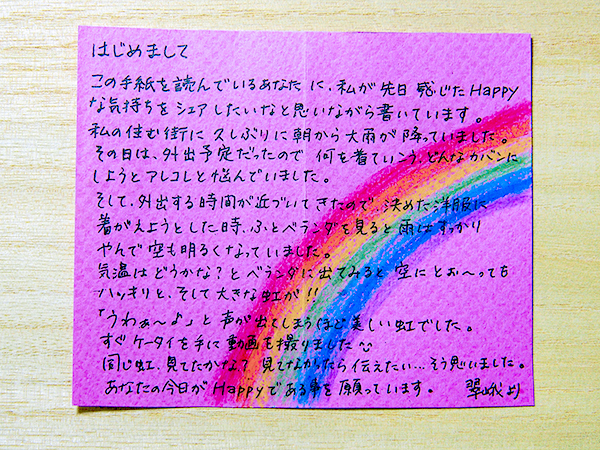 はじめまして
この手紙を読んでいるあなたに、私が先日感じたHappy
な気持ちをシェアしたいなと思いながら書いています。
私の住む街に久しぶりに朝から大雨が降っていました。
その日は、外出予定だったので何を着ていこう、どんなカバンに
しようとアレコレと悩んでいました。
そして、外出する時間が近づいてきたので決めた洋服に
着がえようとした時、ふとベランダを見ると雨はすっかり
やんで空も明るくなっていました。
気温はどうかな?とベランダに出てみると空にとぉ〜っても
ハッキリと、そして大きな虹が!!
「うわぁ〜♪」と声が出てしまうほど美しい虹でした。
すぐケータイを手に動画も撮りました
同じ虹、見てたかな?見てなかったら伝えたい…そう思いました。
あなたの今日がHappyである事を願っています。 翠峨より